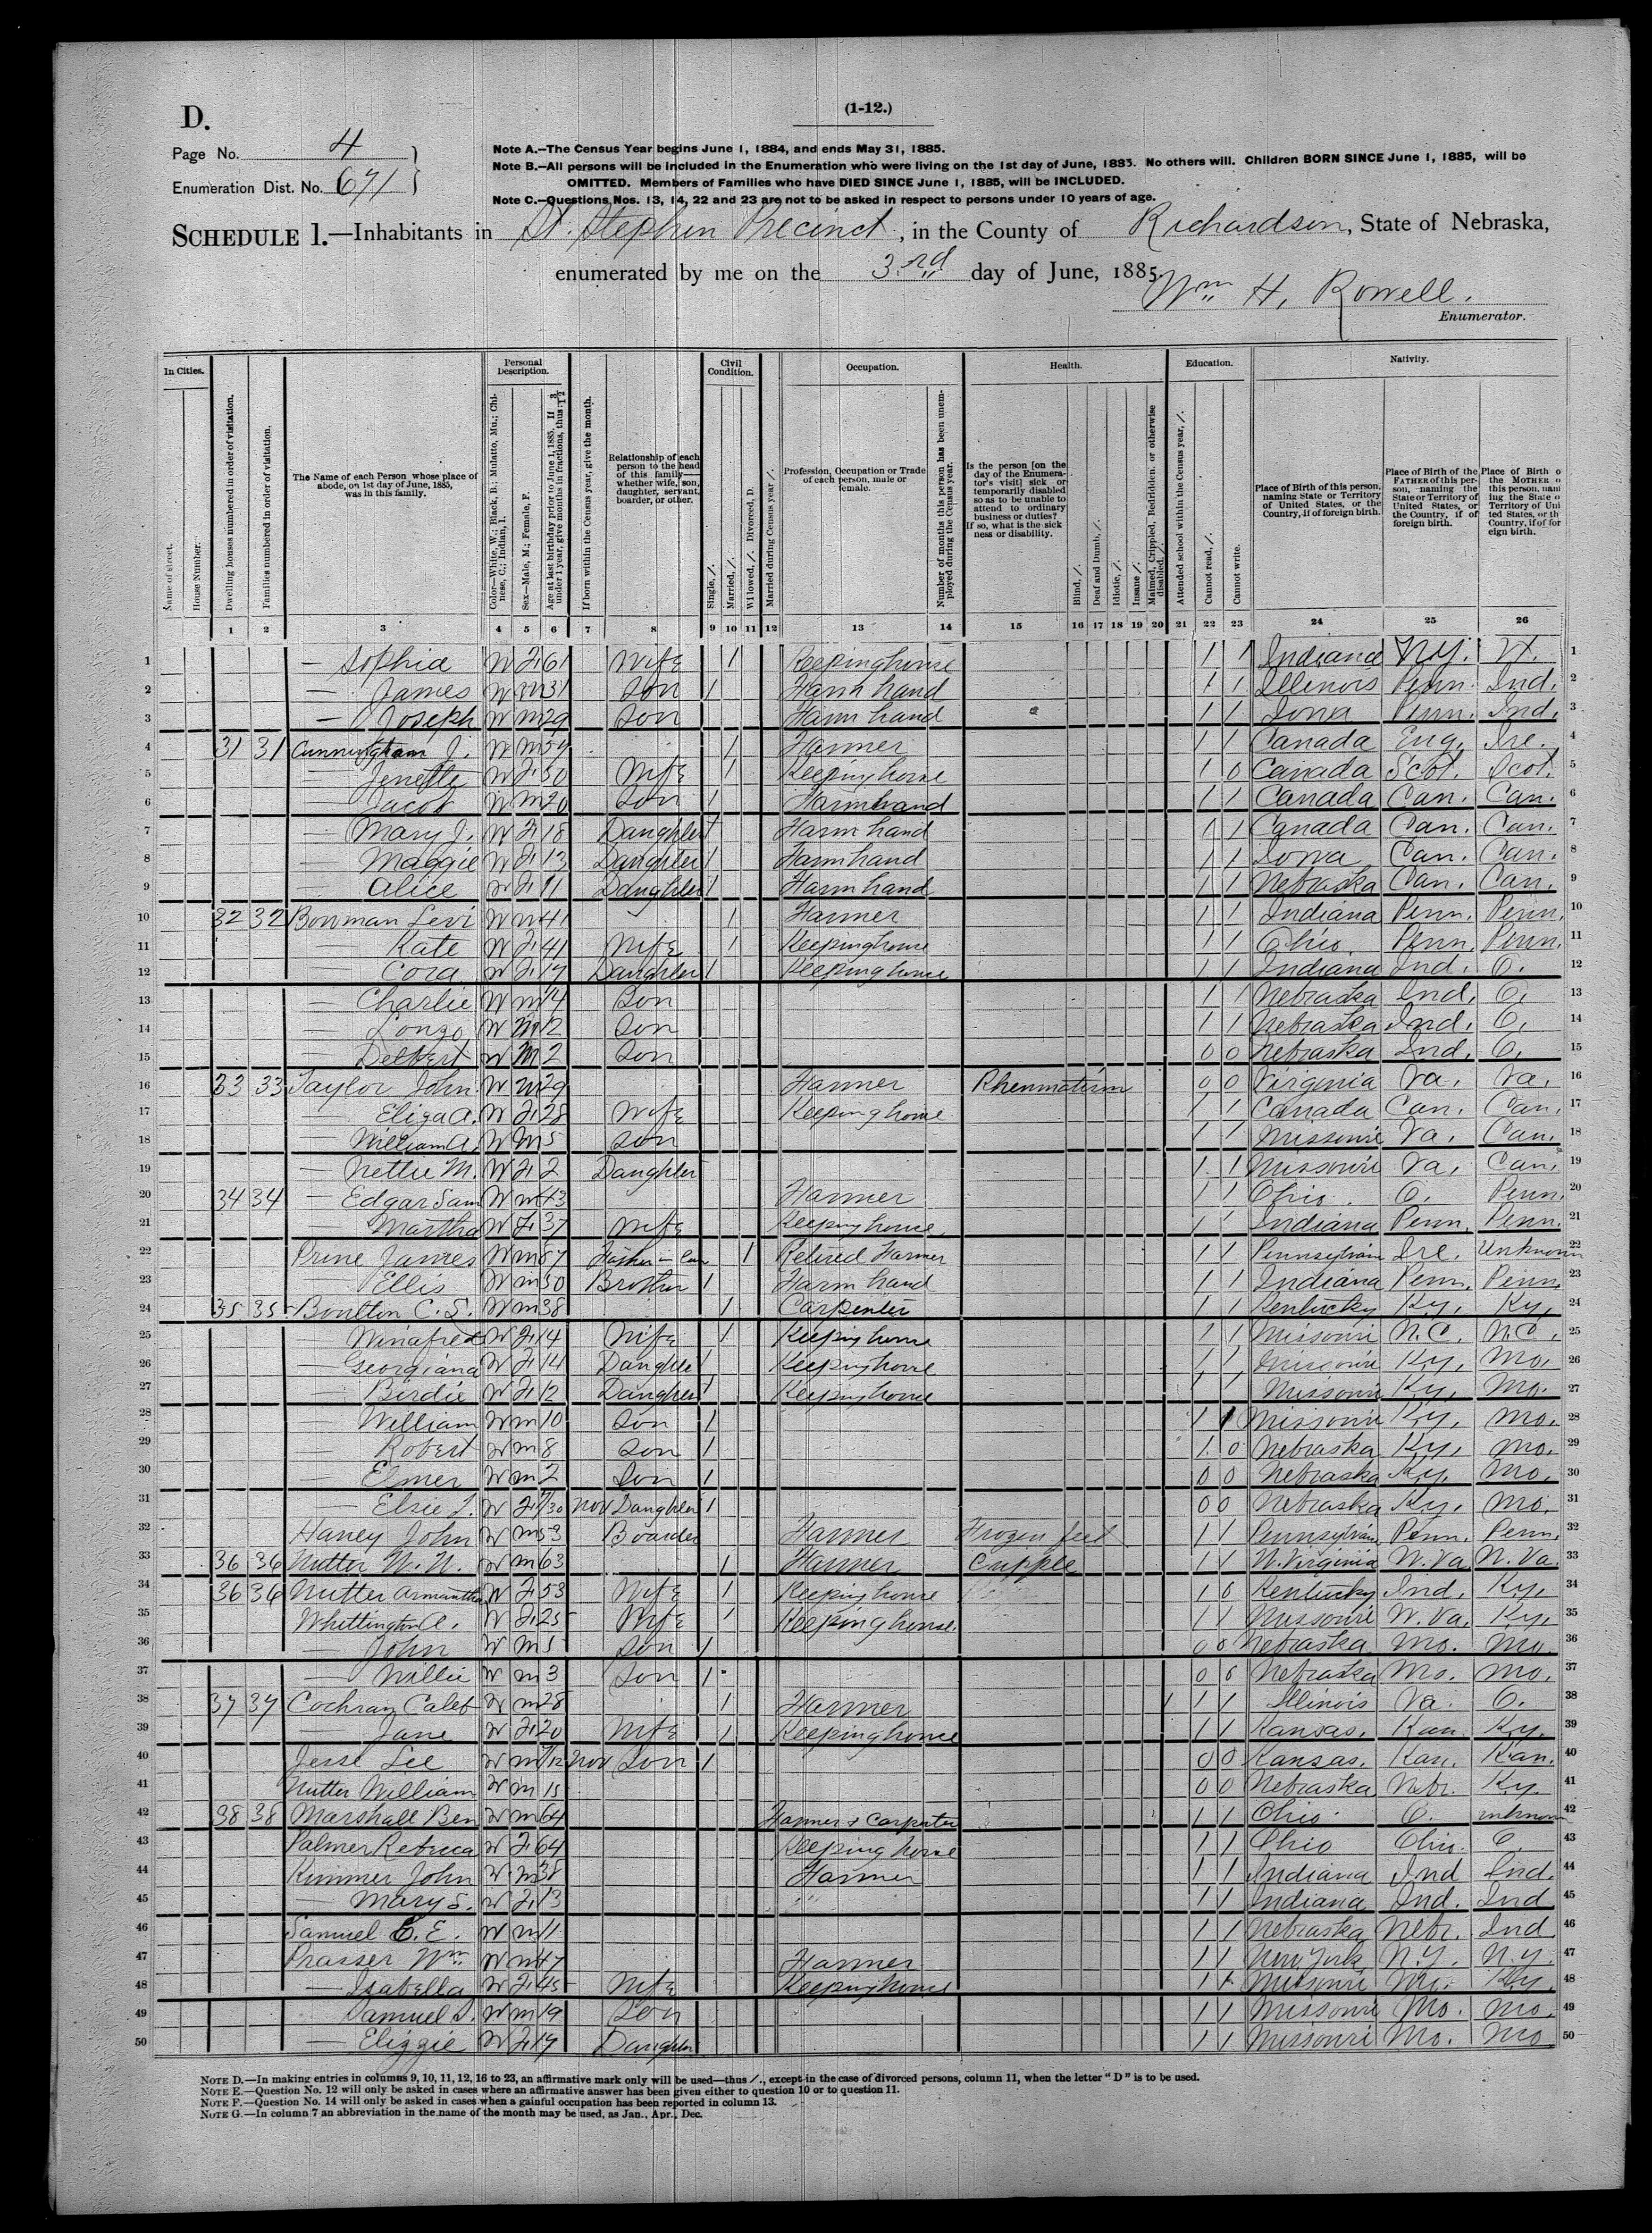 D.
(1-12.)
Page No. 4
Enumeration Dist. No. 671
Note A.—The Census Year begins June 1, 1884, and ends May 31, 1885.
Note B.—All persons will be included in the Enumeration who were living on the 1st day of June, 1885. No others will. Children BORN SINCE June 1, 1885, will be
OMITTED. Members of Families who have DIED SINCE June 1, 1885, will be INCLUDED.
Note C.—Questions Nos. 13, 14, 22 and 23 are not to be asked in respect to persons under 10 years of age.
SCHEDULE 1.—Inhabitants in St. Stephen Precinct, in the County of Richardson, State of Nebraska,
enumerated by me on the 3rd day of June, 1885.
Wm H. Rowell.
Enumerator.
In Cities. Personal Description. Civil Condition. Occupation. Health. Education. Nativity.
Name of street.
House Number.
Dwelling houses numbered in order of visitation.
Families numbered in order of visitation.
The Name of each Person whose place of abode, on 1st day of June, 1885, was in this family.
Color—White, W.; Black, B.; Mulatto, Mu.; Chinese, C.; Indian, I.
Sex—Male, M.; Female, F.
Age at last birthday prior to June 1, 1885. If under 1 year, give months in fractions, thus: 3/12
If born within the Census year, give the month.
Relationship of each person to the head of this family—whether wife, son, daughter, servant, boarder, or other.
Single, /.
Married, /.
Widowed, /. Divorced, D.
Married during Census year /.
Profession, Occupation or Trade of each person, male or female.
Number of months this person has been unemployed during the Census year.
Is the person [on the day of the Enumerator's visit] sick or temporarily disabled so as to be unable to attend to ordinary business or duties? If so, what is the sickness or disability.
Blind, /.
Deaf and Dumb, /.
Idiotic, /.
Insane /.
Maimed, Crippled, Bedridden, or otherwise disabled, /.
Attended school within the Census year, /.
Cannot read, /.
Cannot write.
Place of Birth of this person, naming State or Territory of United States, or the Country, if of foreign birth.
Place of Birth of the FATHER of this person, naming the State or Territory of United States, or the Country, if of foreign birth.
Place of Birth o the MOTHER o this person, nami ing the State o Territory of Uni ted States, or th Country, if of for eign birth.
1 2 3 4 5 6 7 8 9 10 11 12 13 14 15 16 17 18 19 20 21 22 23 24 25 26
1 — Sophia W F 61 Wife 1 Keeping house 1 1 Indiana N.Y. 1
2 — James W M 31 Son 1 Farm hand 1 1 Illinois Penn. Ind. 2
3 — Joseph W M 29 Son 1 Farm hand 1 1 Iowa Penn. Ind. 3
4 31 31 Cunningham J. W M 59 1 Farmer 1 1 Canada Eng. Ire. 4
5 — Jenette W F 50 Wife 1 Keeping house 1 0 Canada Scot. Scot. 5
6 — Jacob W M 20 Son 1 Farm hand 1 1 Canada Can. Can. 6
7 — Mary J. W F 18 Daughter 1 Farm hand 1 1 Canada Can. Can. 7
8 — Maggie W F 13 Daughter 1 Farm hand 1 1 Iowa Can. Can. 8
9 — Alice W F 11 Daughter 1 Farm hand 1 1 Nebraska Can. Can. 9
10 32 32 Bowman Levi W M 41 1 Farmer 1 1 Indiana Penn. Penn. 10
11 — Kate W F 41 Wife 1 Keeping house 1 1 Ohio Penn. Penn. 11
12 — Cora W F 17 Daughter 1 Keeping house 1 1 Indiana Ind. O. 12
13 — Charlie W M 14 Son 1 1 Nebraska Ind. O. 13
14 — Lonzo W M 12 Son 1 1 Nebraska Ind. O. 14
15 — Delbert W M 2 Son 0 0 Nebraska Ind. O. 15
16 33 33 Taylor John W M 29 Farmer Rheumatism 0 0 Virginia Va. Va. 16
17 — Eliza A. W F 28 Wife Keeping house 1 1 Canada Can. Can. 17
18 — William A. W M 5 Son 1 1 Missouri Va. Can. 18
19 — Nettie M. W F 2 Daughter 1 1 Missouri Va. Can. 19
20 34 34 — Edgar Sam W M 43 Farmer 1 1 Ohio O. Penn. 20
21 — Martha W F 37 Wife Keeping house 1 1 Indiana Penn. Penn. 21
22 Prine James W M 67 Father in Law 1 Retired Farmer 1 1 Pennsylvania Ire. Unknown 22
23 — Ellis W M 50 Brother 1 Farm hand 1 1 Indiana Penn. Penn. 23
24 35 35 Boulton C. S. W M 38 1 Carpenter 1 1 Kentucky Ky. Ky. 24
25 — Winafred W F 14 Wife 1 Keeping house 1 1 Missouri N.C. N.C. 25
26 — Georgiana W F 14 Daughter 1 Keeping house 1 1 Missouri Ky. Mo. 26
27 — Birdie W F 12 Daughter 1 Keeping house 1 1 Missouri Ky. Mo. 27
28 — William W M 10 Son 1 1 1 Missouri Ky. Mo. 28
29 — Robert W M 8 Son 1 1 0 Nebraska Ky. Mo. 29
30 — Elmer W M 2 Son 1 0 0 Nebraska Ky. Mo. 30
31 — Elsie W F 7/30 Nov Daughter 1 0 0 Nebraska Ky. Mo. 31
32 Haney John W M 53 Boarder Farmer Frozen feet 1 1 Pennsylvania Penn. Penn. 32
33 36 36 Nutter W M 63 1 Farmer Cripple 1 1 W. Virginia W. Va. W. Va. 33
34 36 36 Nutter Armantha W F 53 Wife 1 Keeping house 1 0 Kentucky Ind. Ky. 34
35 Whittington A. W F 25 Wife 1 Keeping house. 1 1 Missouri W. Va. Ky. 35
36 — John W M 5 Son 1 0 0 Nebraska Mo. Mo. 36
37 — Willie W M 3 Son 1 0 0 Nebraska Mo. Mo. 37
38 37 37 Cochran Caleb W M 28 1 Farmer 1 1 1 Illinois Va. O. 38
39 — Jane W F 20 Wife 1 Keeping house 1 1 Kansas. Kan. Ky. 39
40 Jesse Lee W M 7/12 Nov Son 1 0 0 Kansas. Kan. Kan. 40
41 Nutter William W M 15 0 0 Nebraska Nebr. Ky. 41
42 38 38 Marshall Ben W M 64 Farmer & Carpenter 1 1 Ohio O. unknown 42
43 Palmer Rebecca W F 64 Keeping house 1 1 Ohio Ohio. O. 43
44 Kimmer John W M 38 Farmer 1 1 Indiana Ind Ind. 44
45 — Mary S. W F 13 " 1 1 Indiana Ind. Ind 45
46 Samuel E. E. W M 11 1 1 Nebraska Nebr. Ind 46
47 Prasser Wm W M 47 Farmer 1 1 New York N.Y. N.Y. 47
48 — Isabella W F 45 Wife Keeping house 1 1 Missouri Mo. Ky. 48
49 — Samuel S. W M 19 Son 1 1 Missouri Mo. Mo. 49
50 — Elizzie W F 17 Daughter 1 1 Missouri Mo. Mo 50
NOTE D.—In making entries in columns 9, 10, 11, 12, 16 to 23, an affirmative mark only will be used—thus /., except in the case of divorced persons, column 11, when the letter "D" is to be used.
NOTE E.—Question No. 12 will only be asked in cases where an affirmative answer has been given either to question 10 or to question 11.
NOTE F.—Question No. 14 will only be asked in cases when a gainful occupation has been reported in column 13.
NOTE G.—In column 7 an abbreviation in the name of the month may be used, as Jan., Apr., Dec.